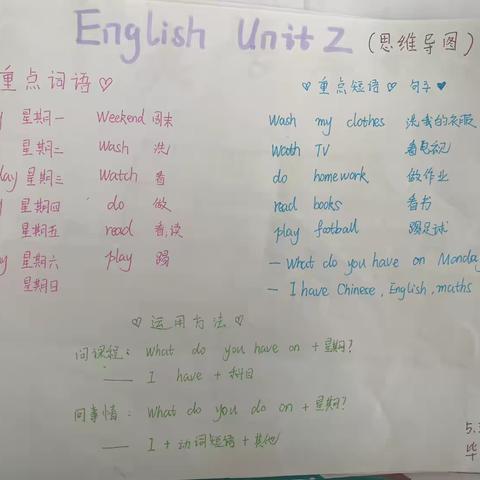 English Unit 2 (思维导图)
重点词语♡
星期一 Weekend 周末
星期二 Wash 洗
day 星期三 Watch 看
星期四 do 做
星期五 read 看,读
y 星期六 play 踢
星期日
♡重点短语♡ 句子♥
Wash my clothes 洗我的衣服
Watch TV 看电视
do homework 做作业
read books 看书
play football 踢足球
— What do you have on Monday
— I have Chinese, English, maths
♡ 运用方法 ♡
问课程: What do you have on +星期?
—— I have + 科目
问事情: What do you do on +星期?
—— I + 动词短语 + 其他
5.
毕